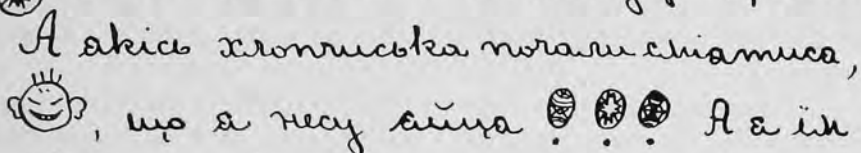 А якісь хлопчиська почали сміятися,
, що я несу яйця !!! А я їм